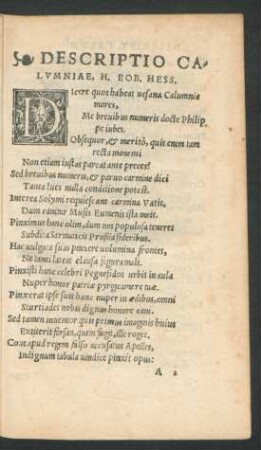 DESCRIPTIO CA
LVMNIAE, H. EOB. HESS.
Dicere quot habeat uesana Calumnia
mores,
Me breuibus numeris docte Philip
pe iubes.
Obsequor, & meritò, quis enim tam
recta monenti
Non etiam iustas pareat ante preces?
Sed breuibus numeris, & paruo carmine dici
Tanta lues nulla conditione potest.
Interea Solymi requiescant carmina Vatis,
Dum canitur Musis Eumenis ista meis.
Pinximus hanc olim, dum nos populosa teneret
Subdita Sarmaticis Prussia sideribus.
Hac uulgus suas pinxere uolumina frontes,
Ne tamen lateat clausa figura muli.
Pinxisti hanc celebri Pegnesidos urbis in aula
Nuper honor patriæ pyrgicamere tuæ.
Pinxerat ipse suis hanc nuper in ædibus, omni
Sturtiades nobis dignus honore cani.
Sed tamen inuentor quis primus imaginis huius
Extiterit forsan, quem fugit, ille roget.
Coram apud regem falso accusatus Apelles,
Indignum tabula uindice pinxit opus:
A 2